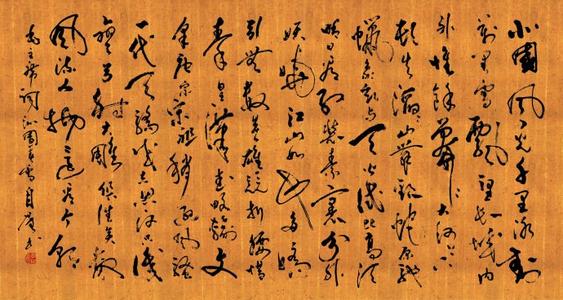 北國風光千里冰封
萬里雪飄望長城內
外惟餘莽莽大河上下
頓失滔滔山舞銀蛇原馳
蠟象欲與天公試比高須
晴日看紅裝素裹分外
妖嬈江山如此多嬌
引無數英雄競折腰惜
秦皇漢武略輸文
采唐宗宋祖稍遜風騷
一代天驕成吉思汗只識
彎弓射大雕俱往矣數
風流人物還看今朝
毛主席詞沁園春雪